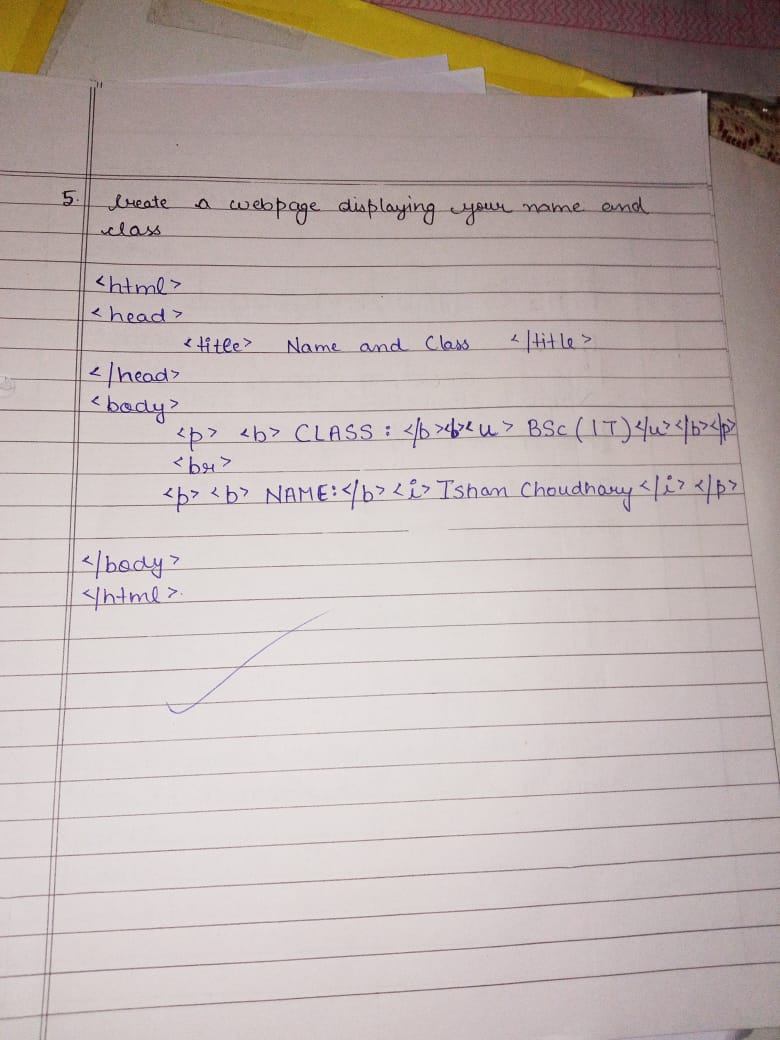 5. Create a webpage displaying your name and
class
<html>
<head>
<title> Name and Class </title>
</head>
<body>
<p> <b> CLASS : </b><b><u> BSc (IT)</u></b></p>
<br>
<p> <b> NAME:</b> <i> Ishan Choudhary </i> </p>
</body>
</html>.